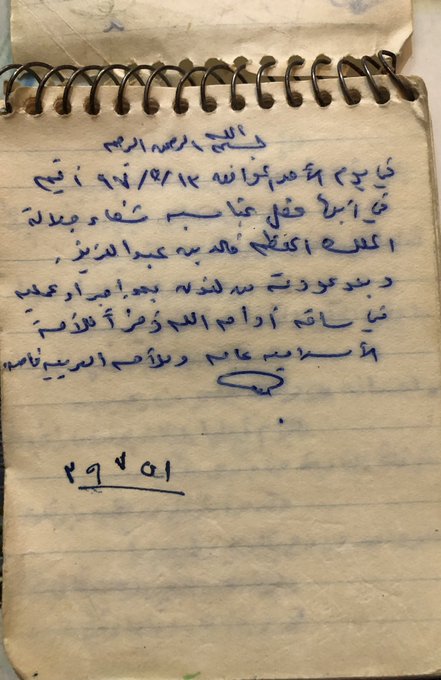 بسم الله الرحمن الرحيم
في يوم الأحد الموافق ١٣/٥/٩٧ أقيم
في أبها حفل بمناسبه شفاء جلالة
الملك المعظم خالد بن عبدالعزيز.
وبعد عودته من لندن بعد إجراء عمليه
في ساقه أدام الله ذخراً للأمة
الأسلاميه عامه وللأمه العربيه خاصه